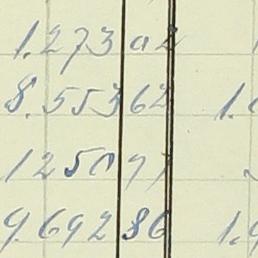 1.273 02
8.553 62 1.
125091
9.692 86 1.9